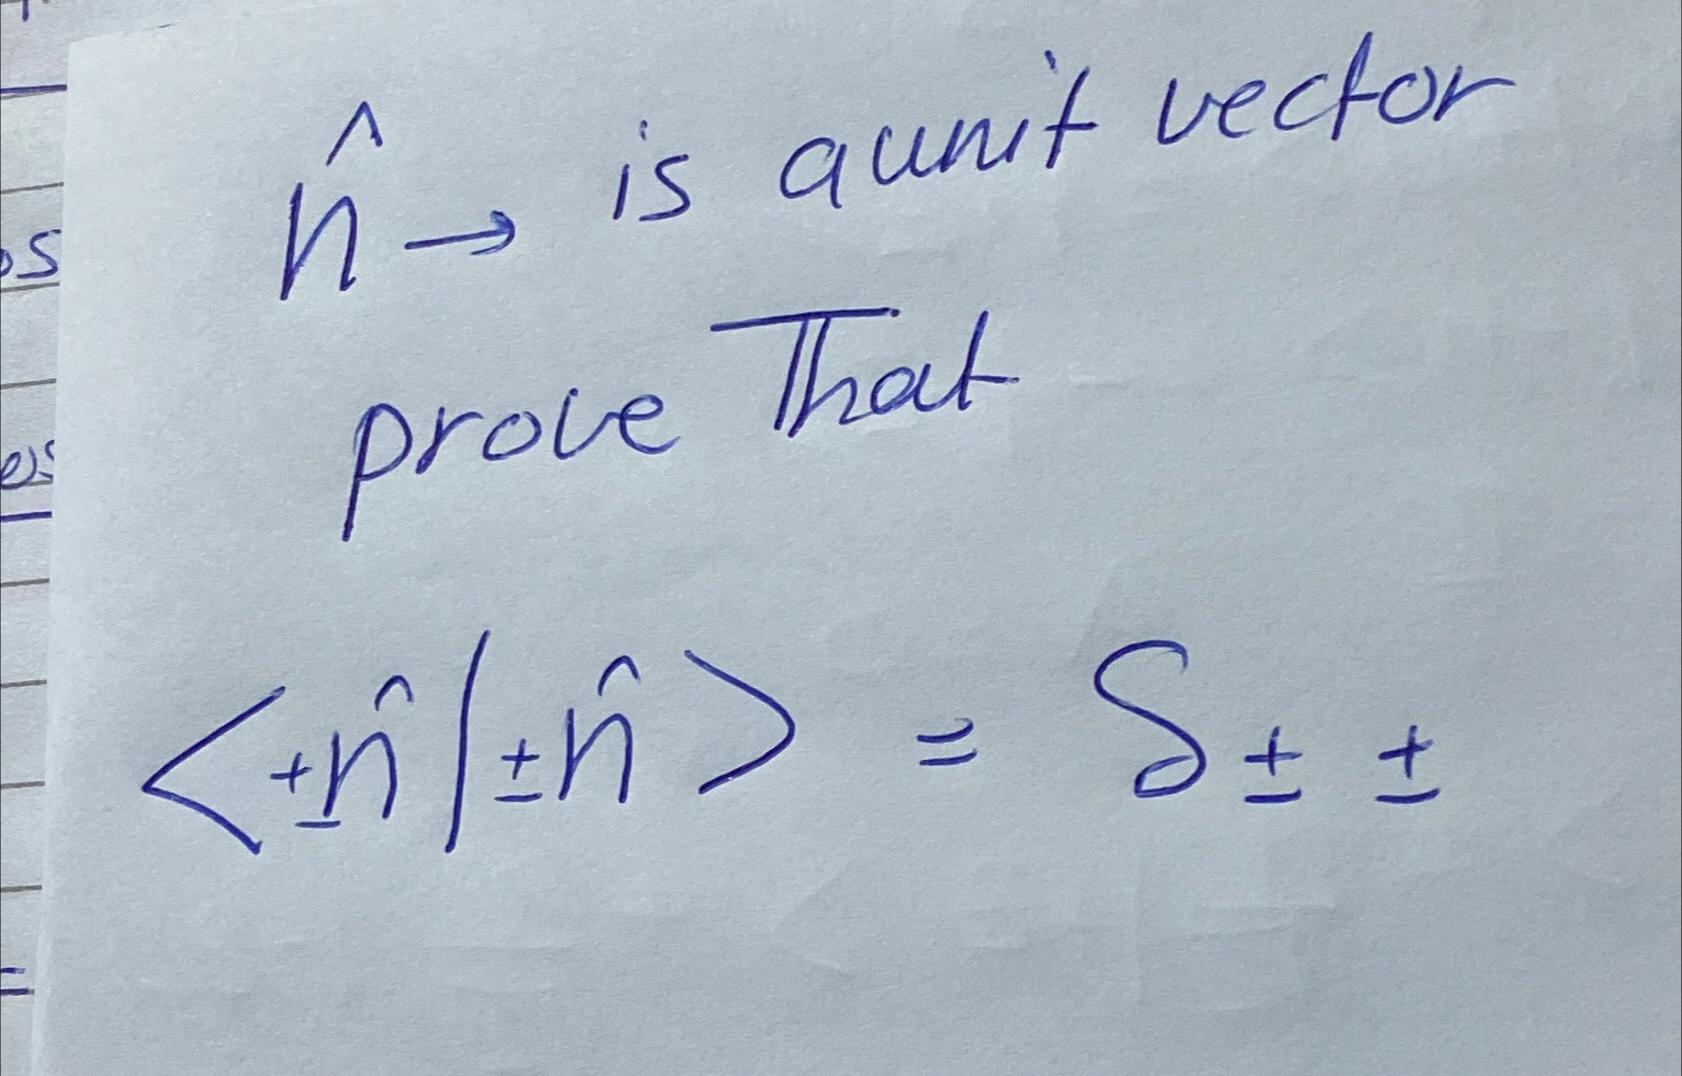 n̂ → is a unit vector
prove That
<±n̂|±n̂> = δ± ±
os
es
=